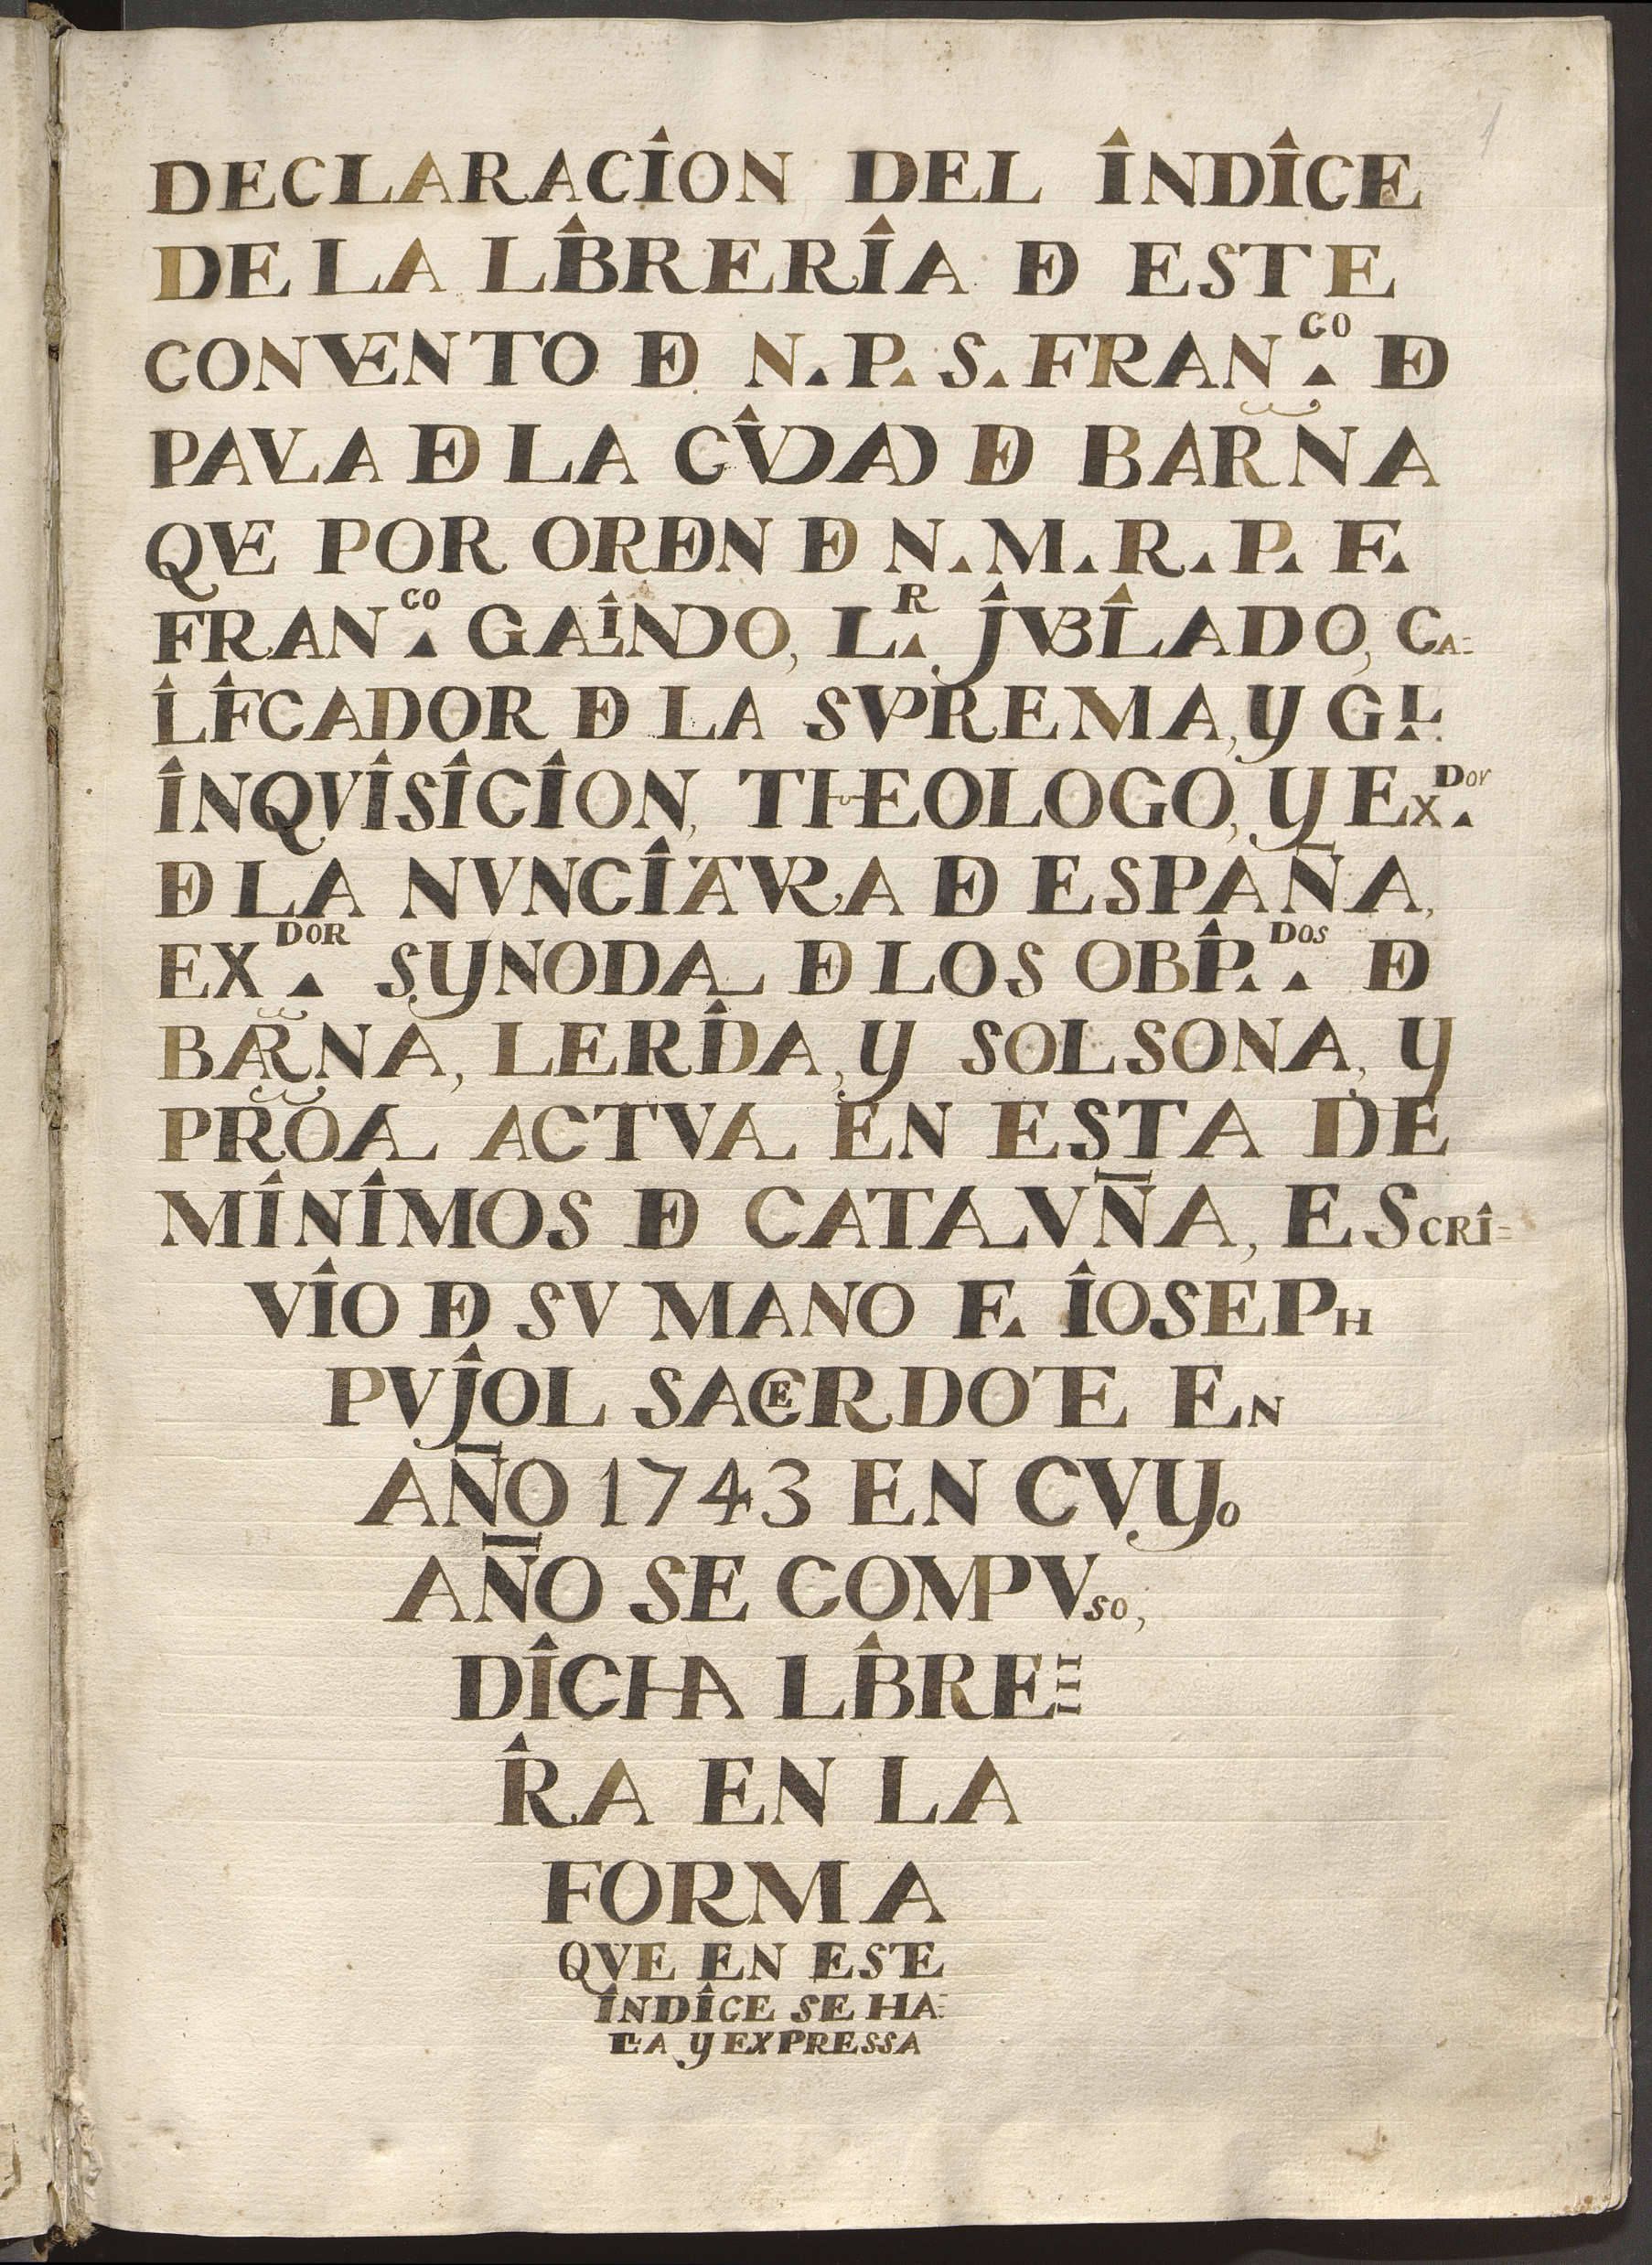 1
DECLARACION DEL INDICE
DE LA LIBRERIA DE ESTE
CONVENTO DE N. P. S. FRAN.CO DE
PAVLA DE LA CIVDAD DE BAR̃NA
QVE POR ORDEN DE N. M. R. P. F.
FRAN.CO GALINDO, L.R JVBILADO, CA-
LIFICADOR DE LA SVPREMA, Y GL.
INQVISICION, THEOLOGO, Y EX.Dor
DE LA NVNCIATVRA DE ESPAÑA,
EX.DOR SYNODAL DE LOS OBIP.DOS DE
BAR̃NA, LERIDA, Y SOLSONA, Y
PRÕAL ACTVAL EN ESTA DE
MINIMOS DE CATALVÑA, ESCRI=
VIO DE SV MANO F. IOSEPH
PVJOL SACERDOTE EN
AÑO 1743 EN CVYo
AÑO SE COMPVSO,
DICHA LIBRE=
RIA EN LA
FORMA
QVE EN ESTE
INDICE SE HA-
LLA Y EXPRESSA